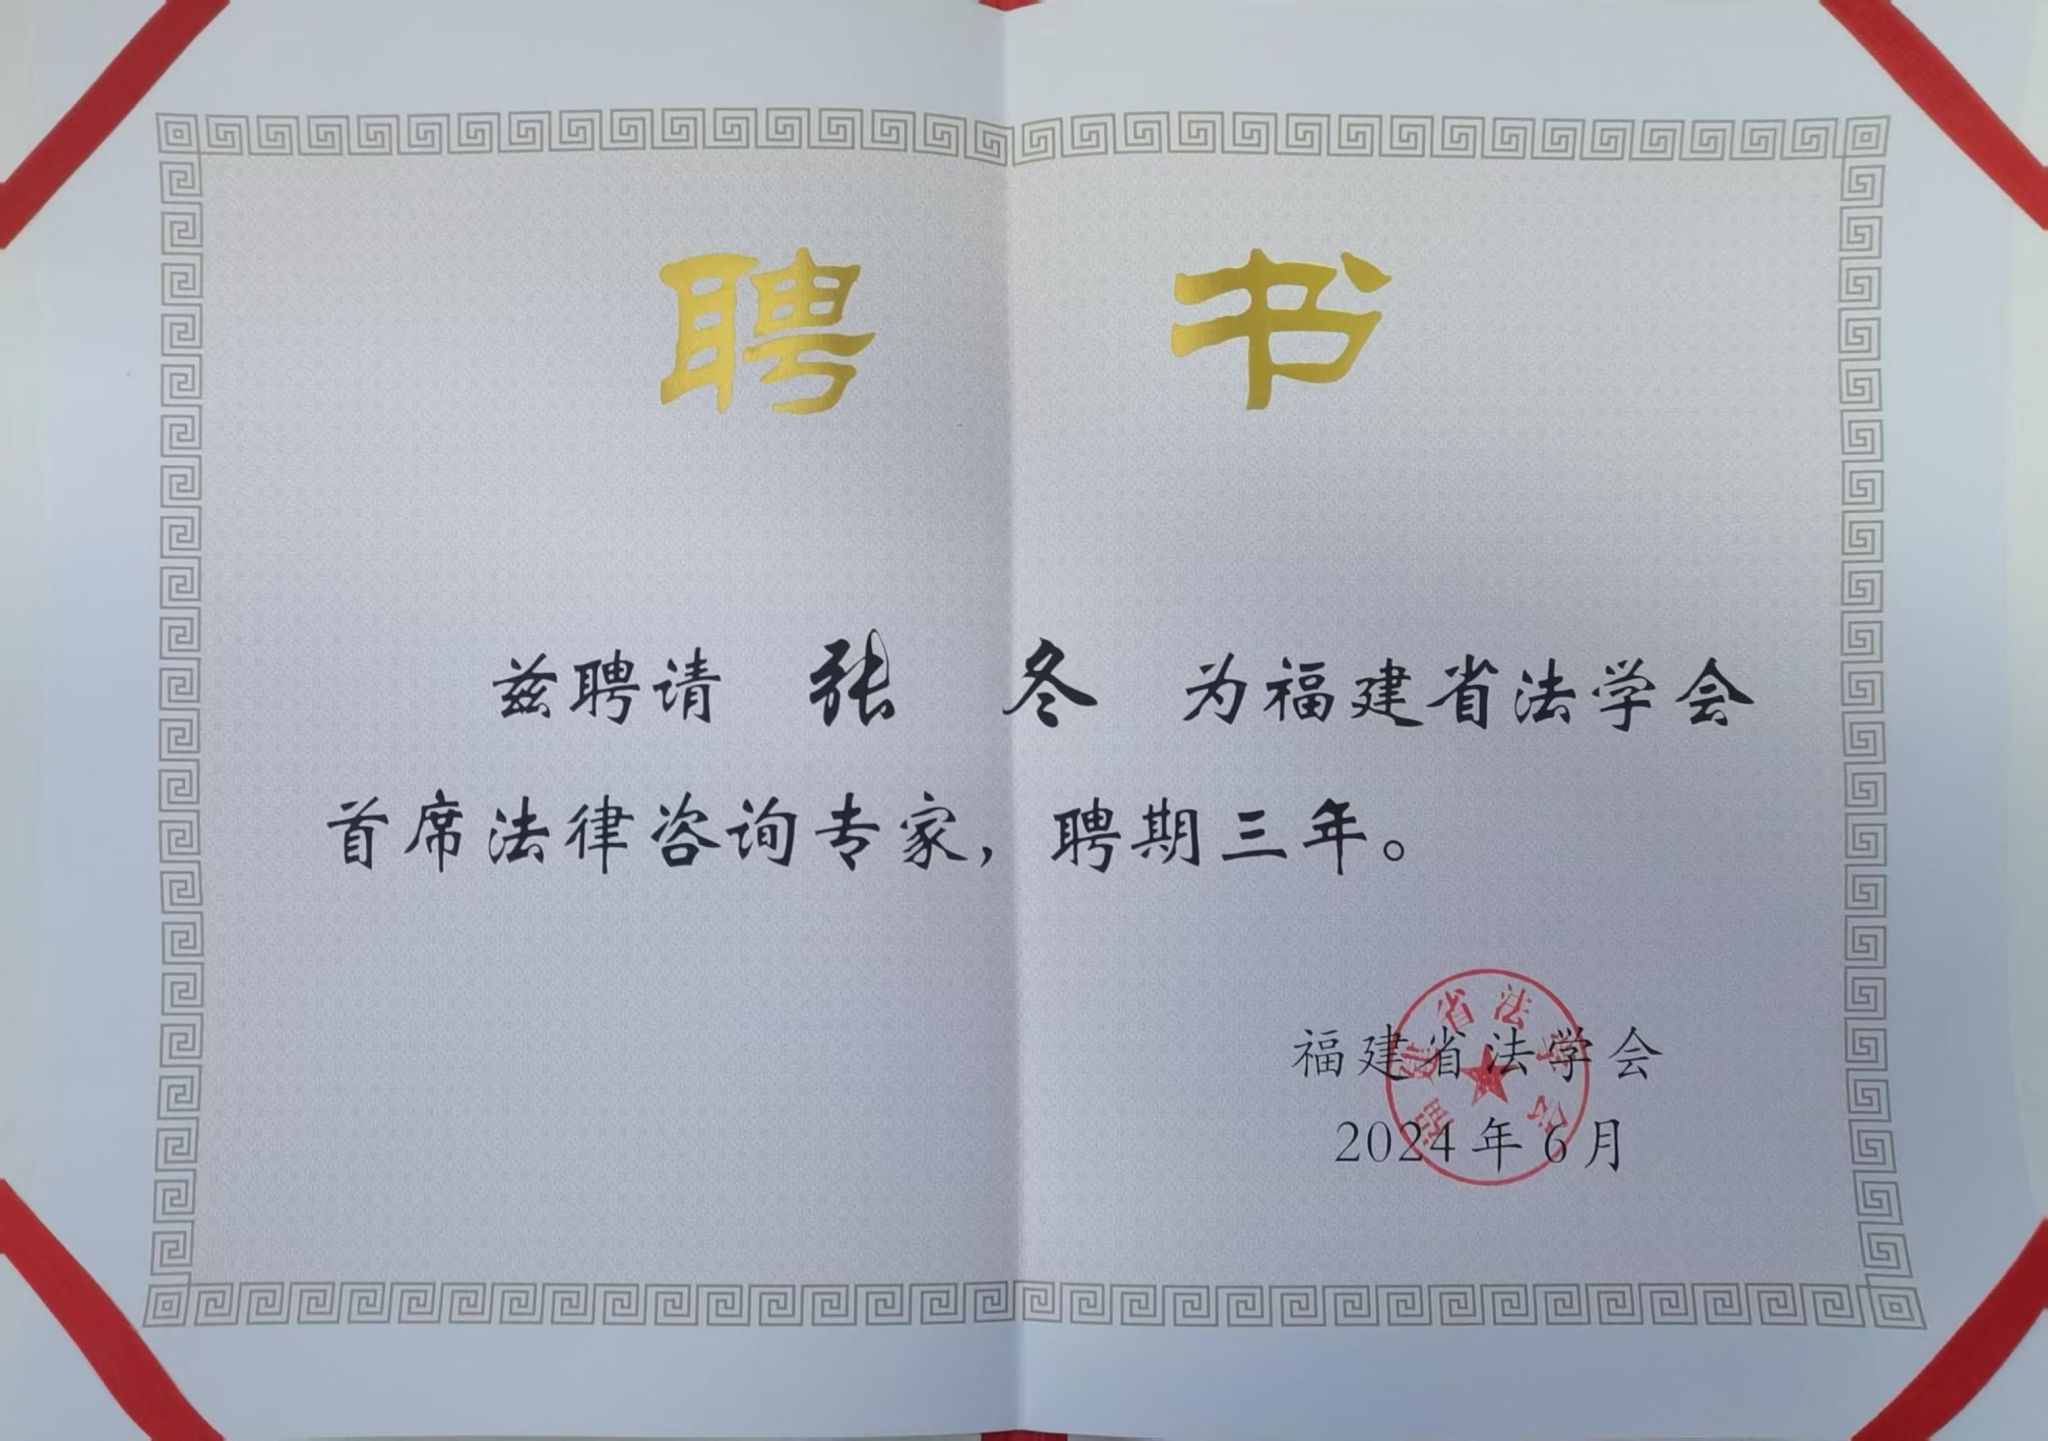 聘 书
兹聘请 张 冬 为福建省法学会
首席法律咨询专家，聘期三年。
福建省法学会
2024年6月
福建省法学会